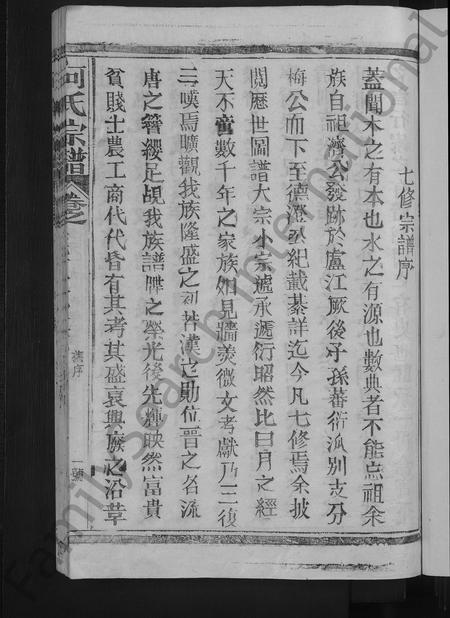 七修宗譜序
蓋聞木之有本也水之有源也數典者不能忘祖余
族自祖濟公發跡於廬江厥後子孫蕃衍派別支分
梅公而下至德澄公紀載綦詳迄今凡七修焉余披
閱歷世圖譜大宗小宗遞承遞衍昭然比日月之經
天不啻數千年之家族如見牆羡微文考獻乃一三復
三嘆焉曠觀我族隆盛之初若漢之勛位晉之名流
唐之簪纓足覘我族譜牒之榮光後先輝映然富貴
貧賤士農工商代代皆有其考其盛衰興族之沿革
何氏宗譜
卷之
譜序
一號
FamilySearch International